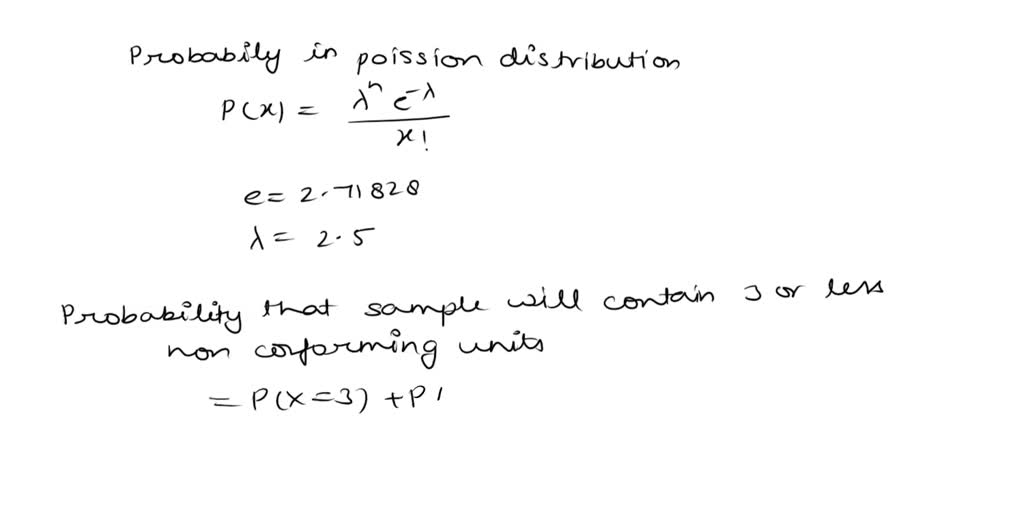 Probabily in poission distribution
P(x) = λⁿ e^-λ / x!
e = 2.71828
λ = 2.5
Probability that sample will contain 3 or less
non conforming units
= P(X=3) + P(